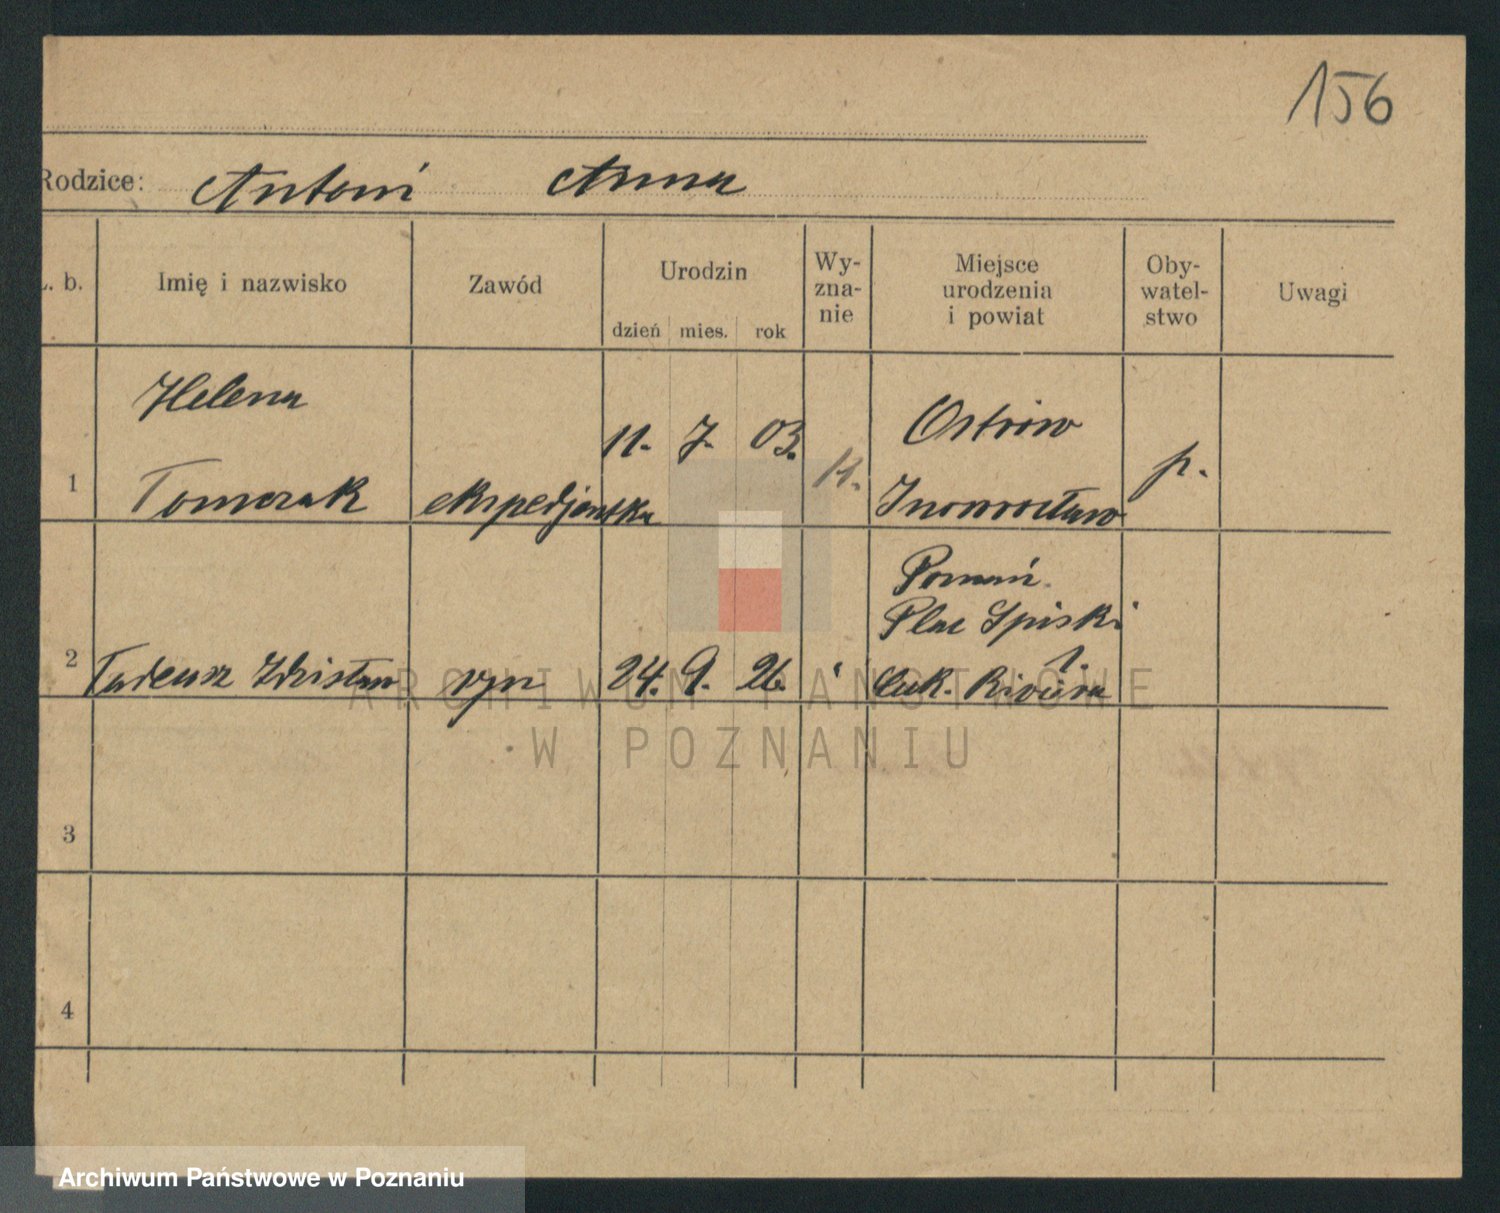 156
Rodzice: Antoni Anna
L. b.
Imię i nazwisko
Zawód
Urodzin
dzień mies. rok
Wy-
zna-
nie
Miejsce
urodzenia
i powiat
Oby-
watel-
stwo
Uwagi
1
Helena
Tomczak
ekspedjentka
11. 7. 03.
Ostrów
Inowrocław
p.
2
Tadeusz Zdzisław
syn
24. 9. 26.
Poznań.
Plac Spiski
1.
Cuk. Riviera
3
4
ARCHIWUM PAŃSTWOWE
W POZNANIU
Archiwum Państwowe w Poznaniu